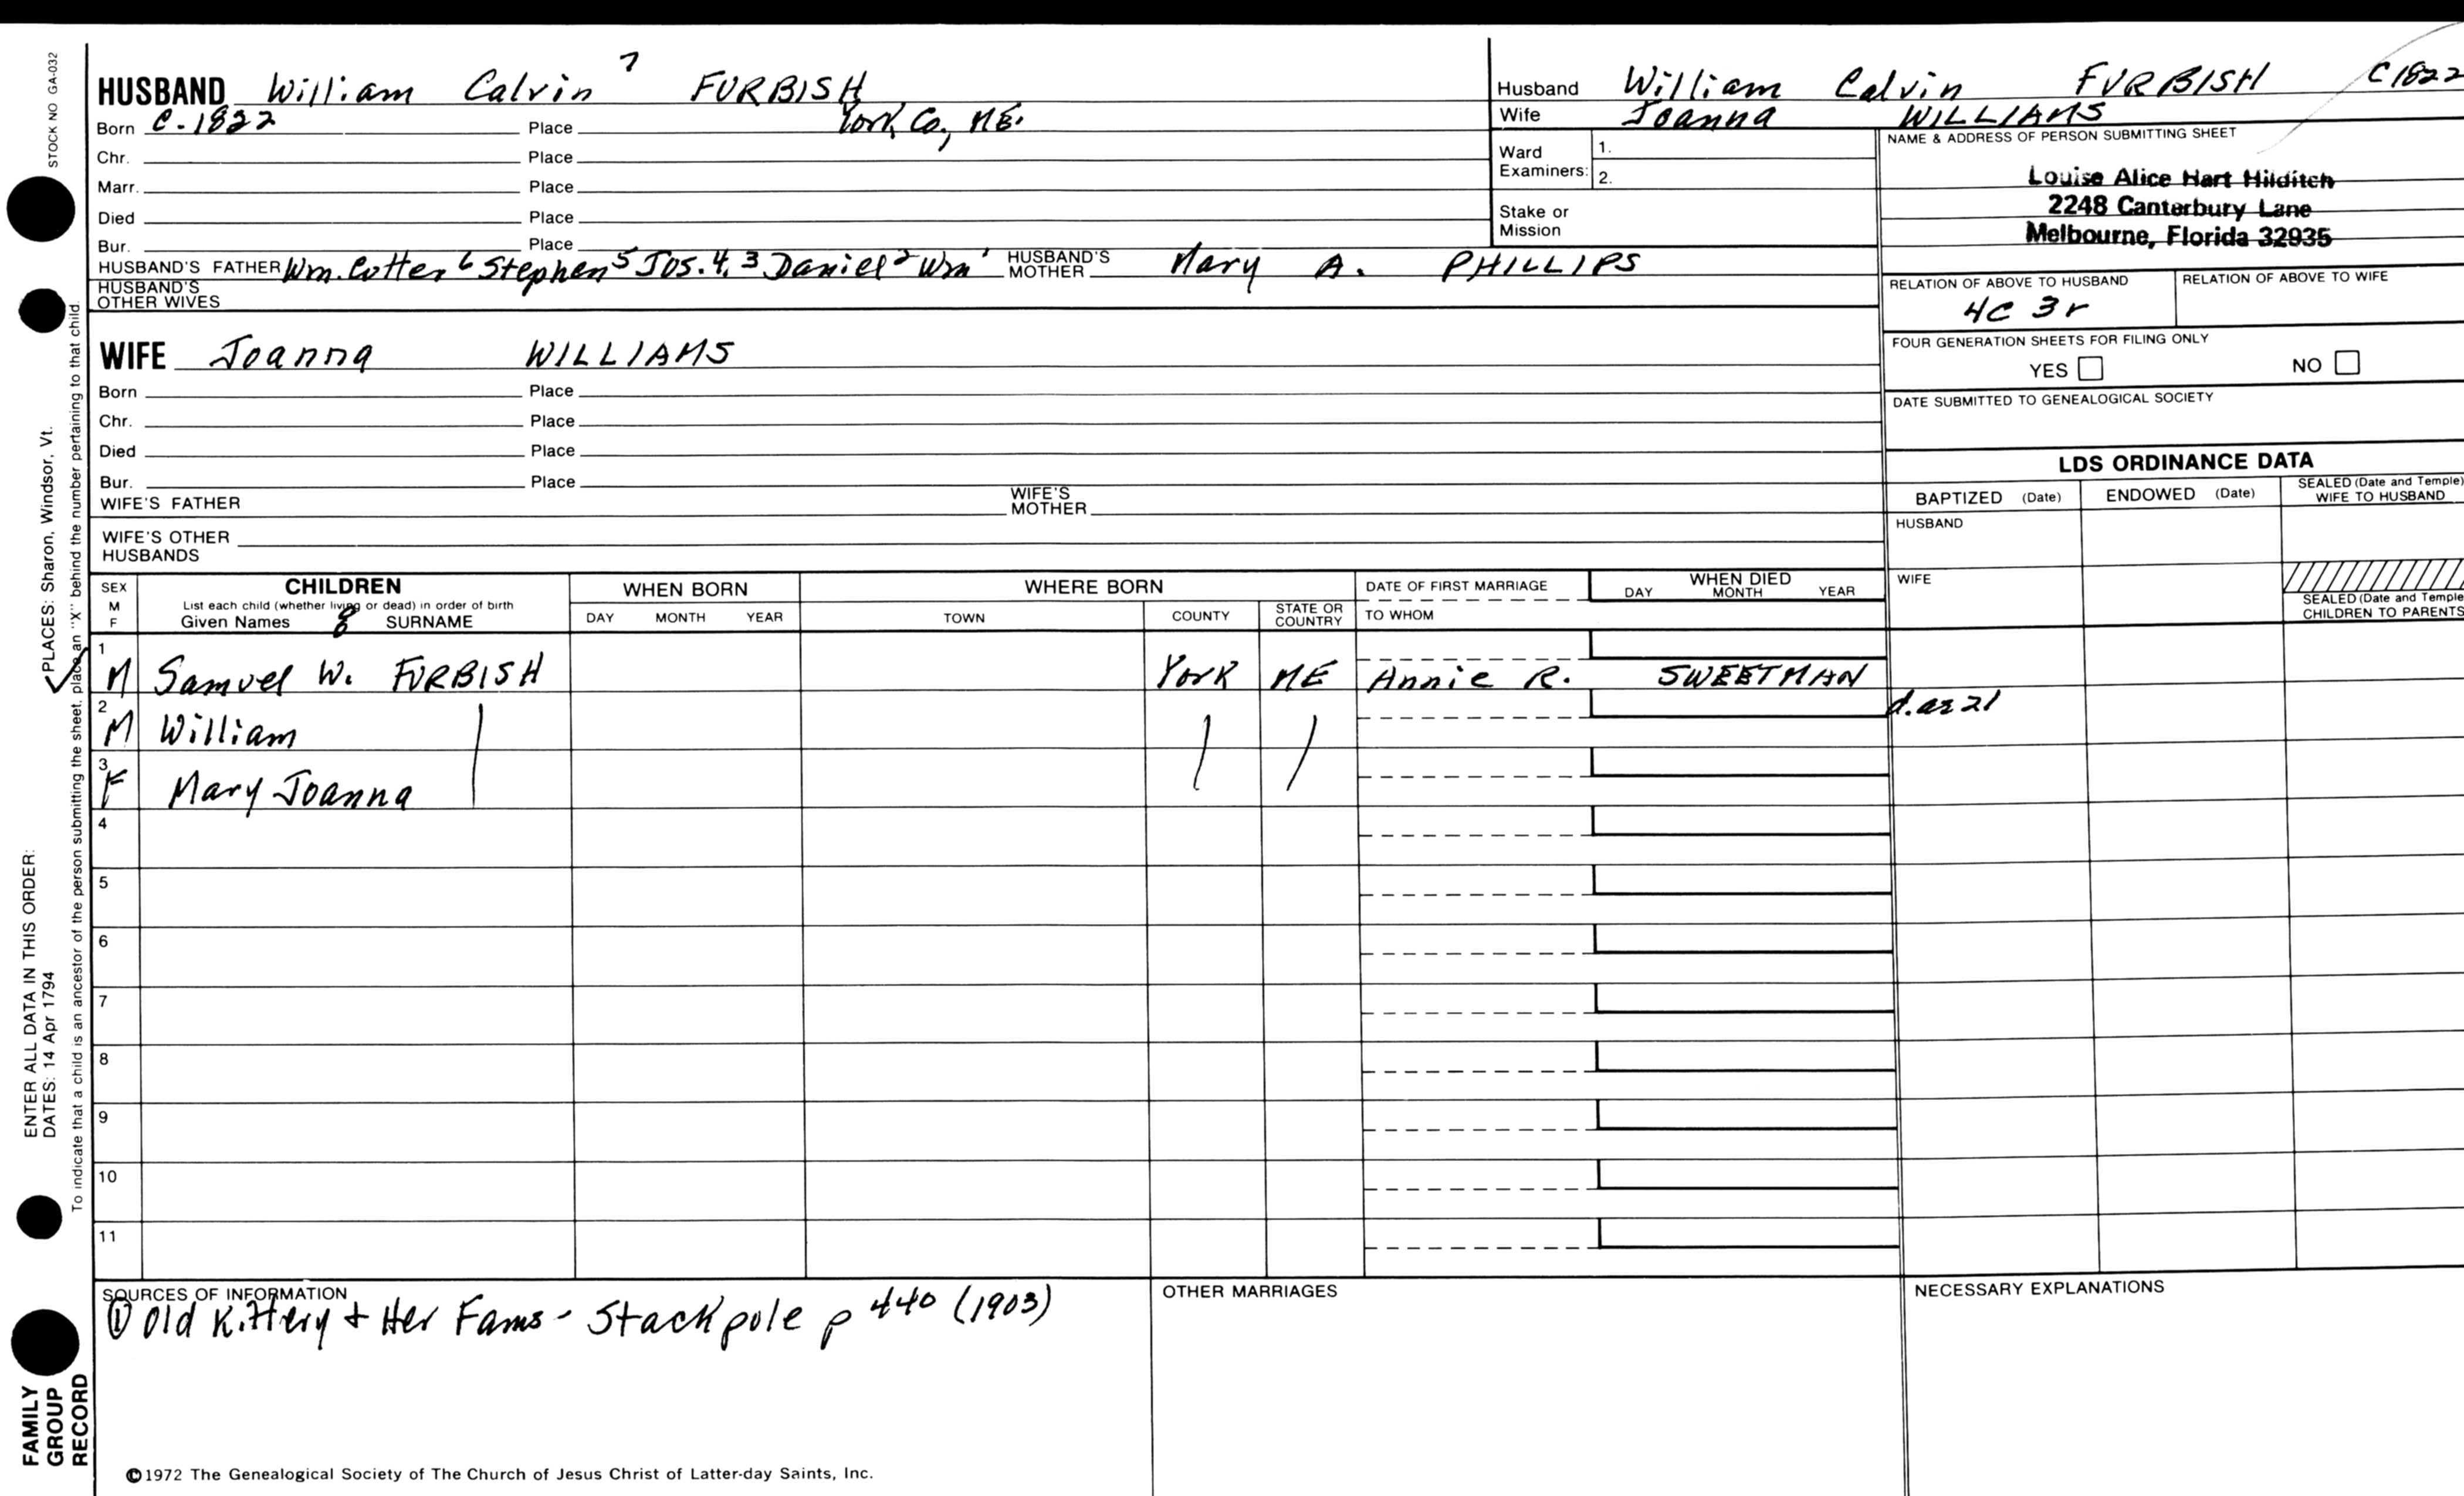 STOCK NO GA-032
HUSBAND William Calvin 7 FURBISH
Born C-1822 Place York Co., ME.
Chr. Place
Marr. Place
Died Place
Bur. Place
HUSBAND'S FATHER Wm. Cotter 6 Stephen 5 Jos. 4, 3 Daniel 2 Wm 1 HUSBAND'S MOTHER Mary A. PHILLIPS
HUSBAND'S OTHER WIVES
WIFE Joanna WILLIAMS
Born Place
Chr. Place
Died Place
Bur. Place
WIFE'S FATHER WIFE'S MOTHER
WIFE'S OTHER HUSBANDS
Husband William Calvin FURBISH C1822
Wife Joanna WILLIAMS
Ward Examiners: 1.
2.
Stake or Mission
NAME & ADDRESS OF PERSON SUBMITTING SHEET
Louise Alice Hart Hilditch
2248 Canterbury Lane
Melbourne, Florida 32935
RELATION OF ABOVE TO HUSBAND RELATION OF ABOVE TO WIFE
4C 3r
FOUR GENERATION SHEETS FOR FILING ONLY
YES NO
DATE SUBMITTED TO GENEALOGICAL SOCIETY
LDS ORDINANCE DATA
BAPTIZED (Date) ENDOWED (Date) SEALED (Date and Temple) WIFE TO HUSBAND
HUSBAND
WIFE
SEALED (Date and Temple
CHILDREN TO PARENTS
SEX M F CHILDREN WHEN BORN WHERE BORN DATE OF FIRST MARRIAGE WHEN DIED
List each child (whether living or dead) in order of birth
Given Names 8 SURNAME DAY MONTH YEAR TOWN COUNTY STATE OR COUNTRY TO WHOM DAY MONTH YEAR
1 M Samuel W. FURBISH York ME Annie R. SWEETMAN
2 M William d. ae 21
3 F Mary Joanna
4
5
6
7
8
9
10
11
SOURCES OF INFORMATION
① Old Kittery & Her Fams - Stackpole p 440 (1903)
OTHER MARRIAGES
NECESSARY EXPLANATIONS
©1972 The Genealogical Society of The Church of Jesus Christ of Latter-day Saints, Inc.
ENTER ALL DATA IN THIS ORDER:
DATES: 14 Apr 1794 PLACES: Sharon, Windsor, Vt.
To indicate that a child is an ancestor of the person submitting the sheet, place an "X" behind the number pertaining to that child.
FAMILY
GROUP
RECORD